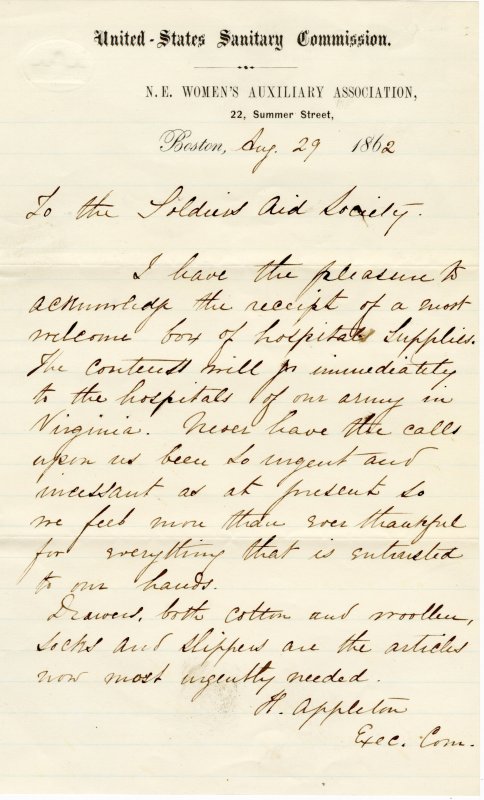 United-States Sanitary Commission.
N. E. WOMEN'S AUXILIARY ASSOCIATION,
22, Summer Street,
Boston, Aug. 29 1862
To the Soldiers Aid Society.
I have the pleasure to
acknowledge the receipt of a most
welcome box of hospital supplies.
The contents will go immediately
to the hospitals of our army in
Virginia. Never have the calls
upon us been so urgent and
incessant as at present so
we feel more than ever thankful
for everything that is entrusted
to our hands.
Drawers, both cotton and woollen,
socks and slippers are the articles
now most urgently needed.
H. Appleton
Exec. Com.